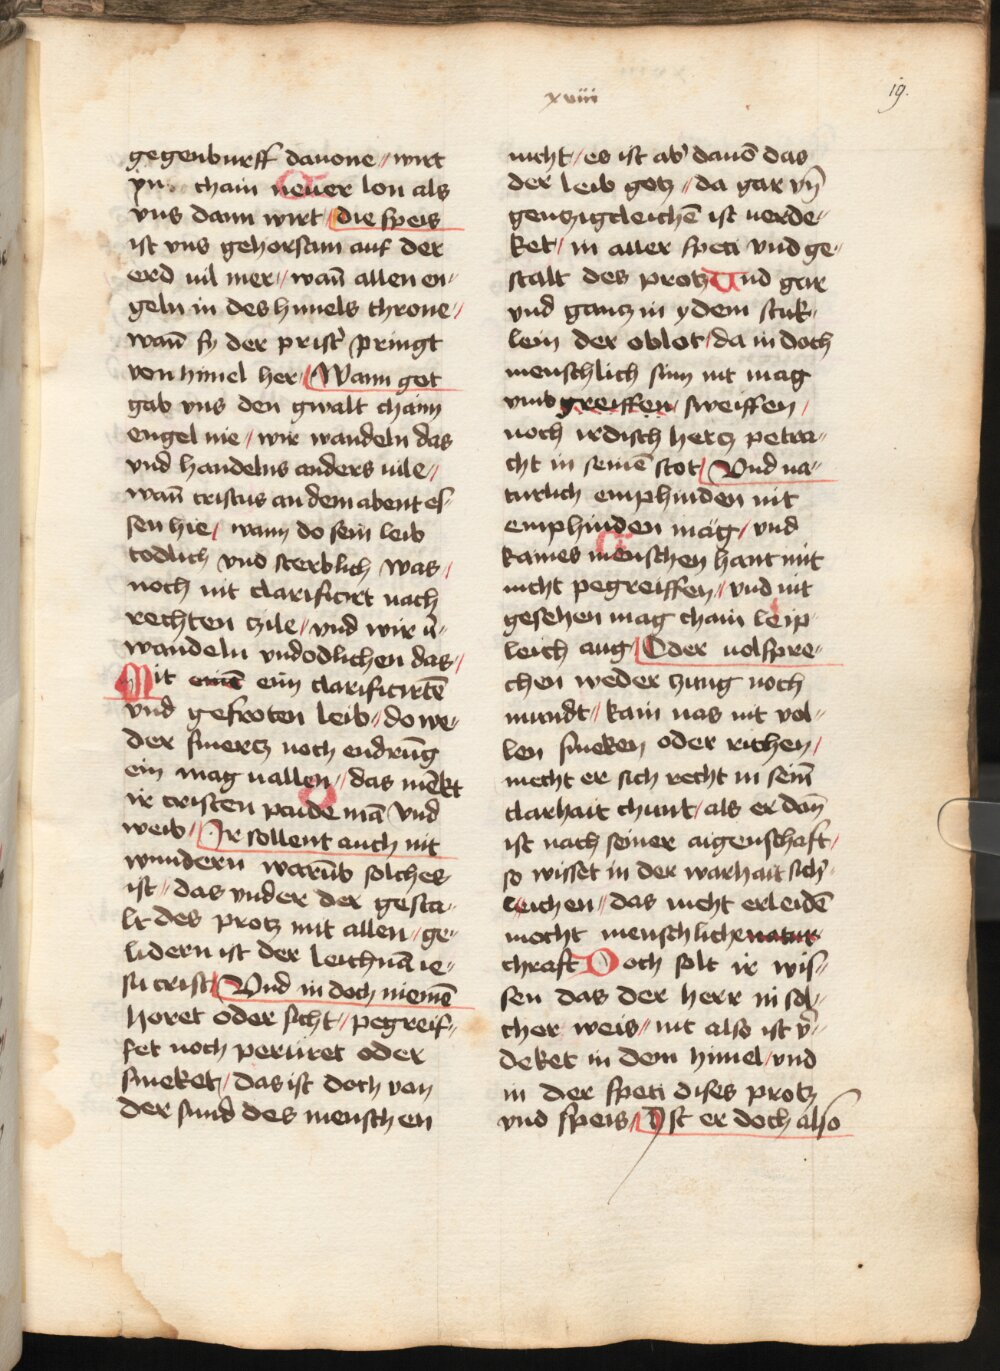 xviii
19.
gegenburff dauone // wirt
yn chain neuer lon als
vns dann wirt / die speis
ist vns gehorsam auf der
erd uil mer // wan̄ allen en-
geln in des himels throne /
wan̄ sy der prist' pringt
von himel her / Wann got
gab vns den gwalt chainn
engel nie / wir wandeln das
vnd handelns anders uile //
wan̄ cristus an dem abent es-
sen hie / wann do sein leib
todlich vnd sterblich was /
noch nit clarificirt nach
rechten zile / vnd wir v'-
wandeln vndodlichen das /
Mit ein clarificirtē
vnd gefroten leib // do we-
der smertz noch endrūg
ein mag uallen // das mēkt
ir cristen paide mā vnd
weib / Ir sollent auch nit
wundern warūb solches
ist // das vnder der gesta-
lt des protz mit allen / ge-
lidern ist der leichnā ie-
su crist / Vnd in doch niemē
horet oder sicht // pegreif-
fet noch perüret oder
smeket / das ist doch von
der sund des menschen
nicht / es ist ab' dauō das
der leib gotz // da gar vn̄
gentzigcleichē ist uerde-
ket / in aller speci vnd ge-
stalt des protz Und gar
vnd gantz in ydem stuk-
lein der oblot / da in doch
menschlich sinn nit mag
vmb greiffen / sweiffen /
noch irdisch hertz petra-
cht in seinē stot / Vnd na-
turlich emphinden nit
emphinden mag / vnd
kaines menschen hant mit
nicht pegreiffen // vnd nit
gesehen mag chain leip-
leich aug / Oder uolspre-
chen weder zung noch
mundt // kain nas nit vol-
len smeken oder richen /
mecht er sich recht in seim̄
clarhait chunt / als er dan̄
ist nach seiner aigenschaft /
so wisset in der warhait sich'-
leichen // das nicht erleidē
mocht menschliche natur
chraft Doch solt ir wis-
sen das der herr in sol-
cher weis // nit also ist v'-
deket in dem himel / vnd
in der speci dises protz
vnd speis / Ist er doch also